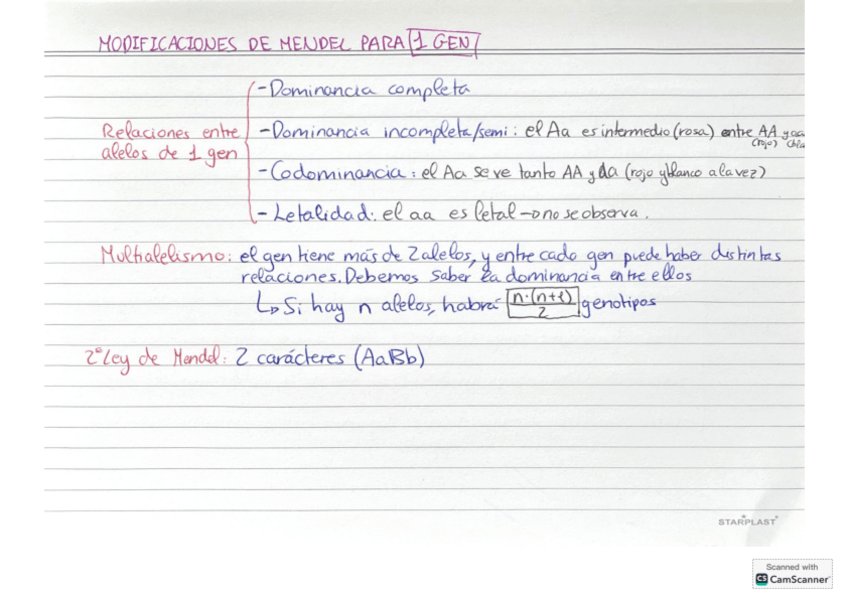 MODIFICACIONES DE MENDEL PARA 1 GEN
- Dominancia completa
Relaciones entre alelos de 1 gen
- Dominancia incompleta/semi: el Aa es intermedio (rosa) entre AA y aa
(rojo)
- Codominancia: el Aa se ve tanto AA y aa (rojo y blanco a la vez)
- Letalidad: el aa es letal → no se observa.
Multialelismo: el gen tiene más de 2 alelos, y entre cada gen puede haber distintas
relaciones. Debemos saber la dominancia entre ellos
↳ Si hay n alelos, habrá n·(n+1)/2 genotipos
2º Ley de Mendel: 2 carácteres (AaBb)
STARPLAST
Scanned with
CS CamScanner